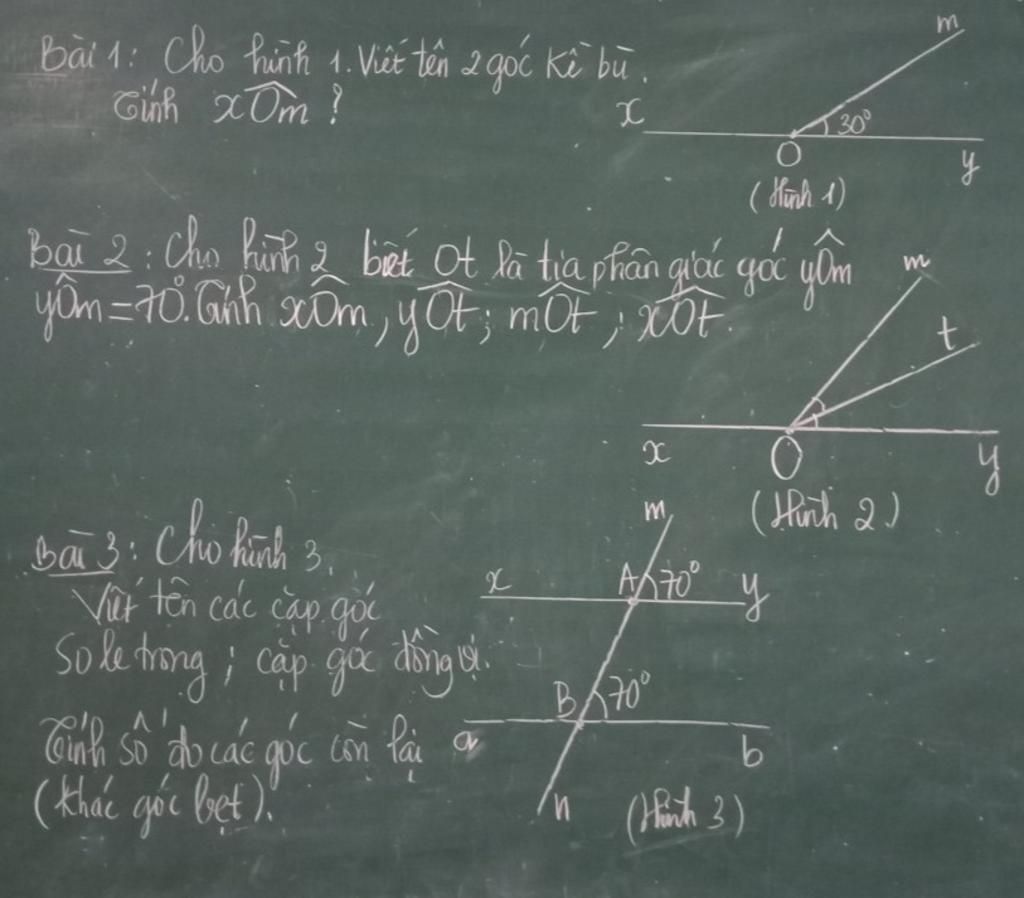 Bài 1: Cho hình 1. Viết tên 2 góc kề bù.
Tính xÔm ?
m
x
30°
O
y
(Hình 1)
Bài 2: Cho hình 2 biết Ot là tia phân giác góc yÔm
yÔm = 70°. Tính xÔm, yÔt; mÔt; xÔt.
m
t
x
O
y
(Hình 2)
Bài 3: Cho hình 3.
Viết tên các cặp góc
So le trong; cặp góc đồng vị.
Tính số đo các góc còn lại
(khác góc bẹt).
m
x
A
70°
y
B
70°
a
b
n
(Hình 3)